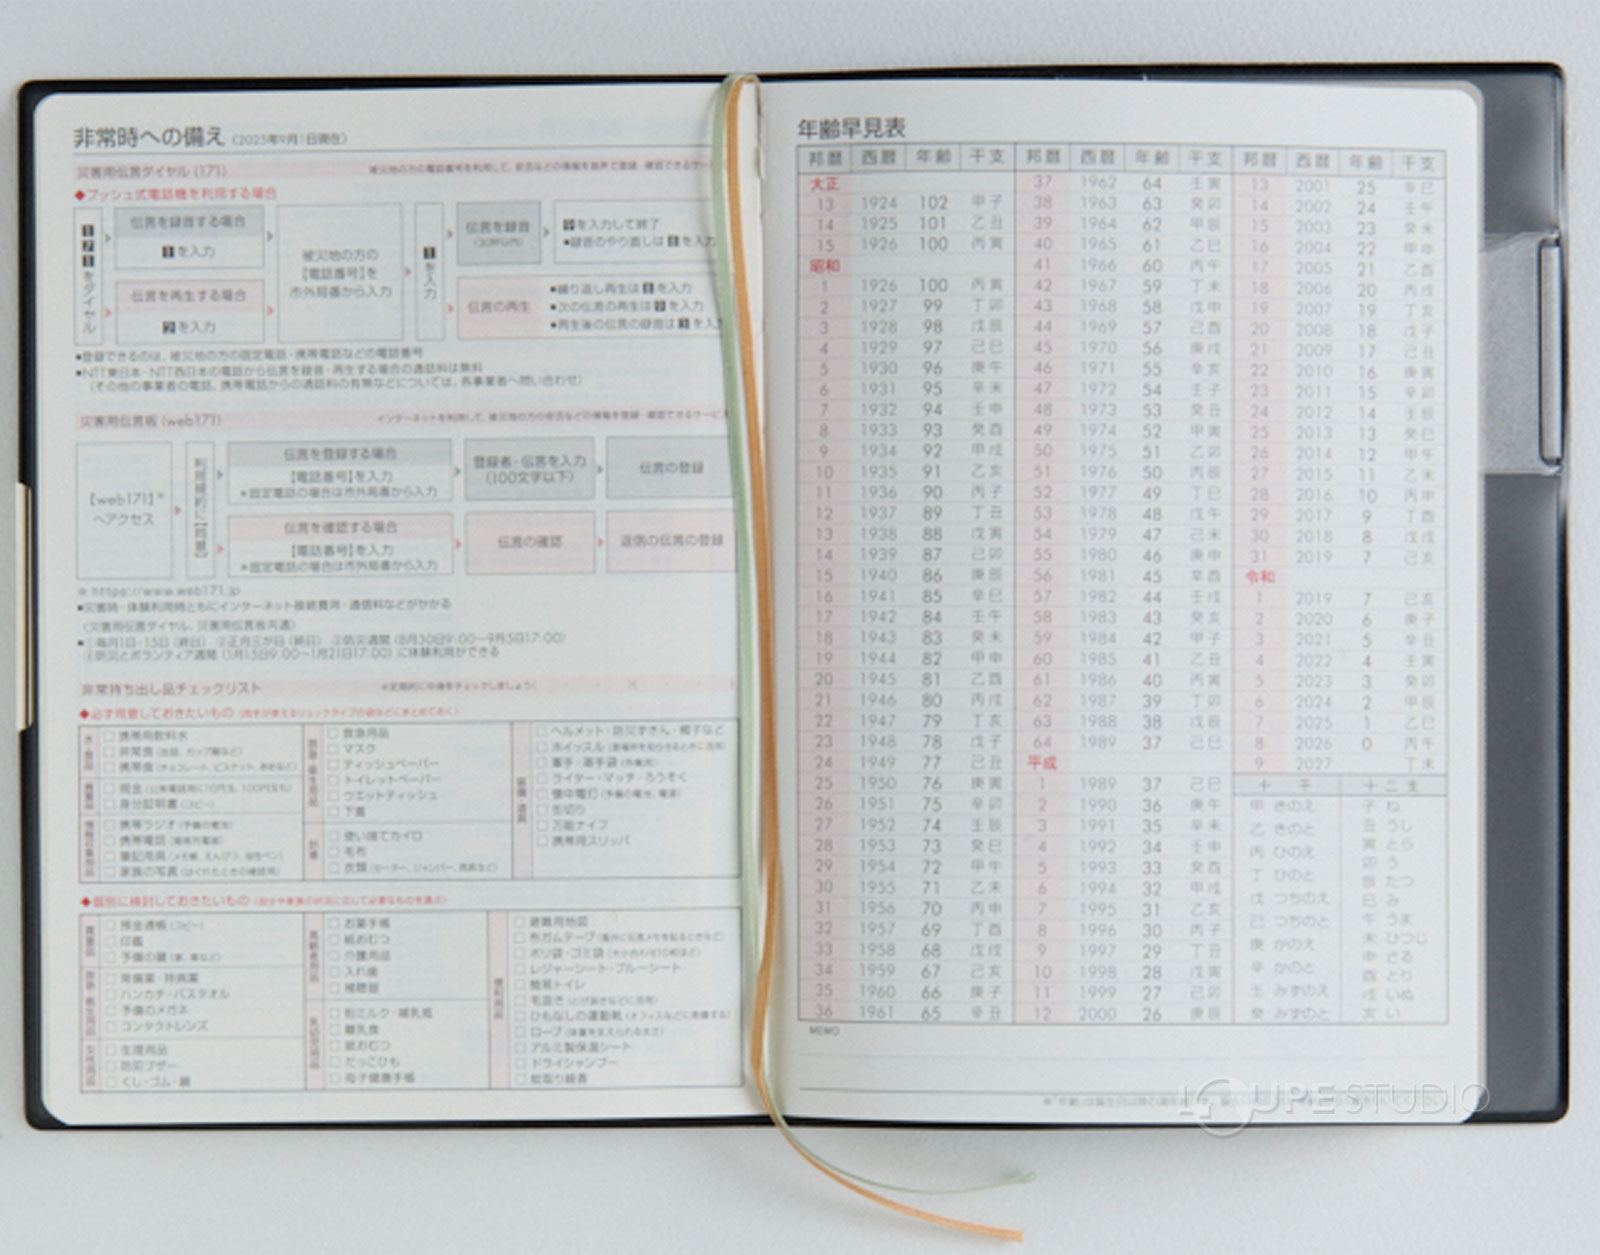 非常時への備え (2025年9月1日現在)
災害用伝言ダイヤル (171) 被災地の方の電話番号を利用して、安否などの情報を音声で登録・確認できるサー
◆プッシュ式電話機を利用する場合
171をダイヤル
伝言を録音する場合
1を入力
伝言を再生する場合
2を入力
被災地の方の
【電話番号】を
市外局番から入力
1を入力
伝言を録音
(30秒以内)
9を入力して終了
■録音のやり直しは8を入力
伝言の再生
■繰り返し再生は8を入力
■次の伝言の再生は9を入力
■再生後の伝言の録音は3を入力
■登録できるのは、被災地の方の固定電話・携帯電話などの電話番号
■NTT東日本・NTT西日本の電話から伝言を録音・再生する場合の通話料は無料
(その他の事業者の電話、携帯電話からの通話料の有無などについては、各事業者へ問い合わせ)
災害用伝言板 (web171) インターネットを利用して、被災地の方の安否などの情報を登録・確認できるサービス
【web171】※
へアクセス
利用規約に【同意】
伝言を登録する場合
【電話番号】を入力
※固定電話の場合は市外局番から入力
登録者・伝言を入力
(100文字以下)
伝言の登録
伝言を確認する場合
【電話番号】を入力
※固定電話の場合は市外局番から入力
伝言の確認
返信の伝言の登録
※ https://www.web171.jp
■災害時・体験利用時ともにインターネット接続費用・通信料などがかかる
〈災害用伝言ダイヤル、災害用伝言板共通〉
■①毎月1日・15日 (終日) ②正月三が日 (終日) ③防災週間 (8月30日9:00〜9月5日17:00)
④防災とボランティア週間 (1月15日9:00〜1月21日17:00) に体験利用ができる
非常持ち出し品チェックリスト ※定期的に中身をチェックしましょう!
◆必ず用意しておきたいもの (両手が使えるリュックタイプの袋などにまとめておく)
水・食品
□携帯用飲料水
□非常食 (缶詰、カップ麺など)
□携帯食 (チョコレート、ビスケット、あめなど)
貴重品
□現金 (公衆電話用に10円玉、100円玉も)
□身分証明書 (コピー)
情報収集用品
□携帯ラジオ (予備の電池)
□携帯電話 (簡易充電器)
□筆記用具 (メモ帳、えんぴつ、油性ペン)
□家族の写真 (はぐれたときの確認用)
救急・衛生用品
□救急用品
□マスク
□ティッシュペーパー
□トイレットペーパー
□ウエットティッシュ
□下着
防寒
□使い捨てカイロ
□毛布
□衣類 (セーター、ジャンパー、雨具など)
装備・道具
□ヘルメット・防災ずきん・帽子など
□ホイッスル (居場所を知らせるときに活用)
□軍手・革手袋 (作業用)
□ライター・マッチ・ろうそく
□懐中電灯 (予備の電池、電球)
□缶切り
□万能ナイフ
□携帯用スリッパ
◆個別に検討しておきたいもの (自分や家族の状況に応じて必要なものを選ぶ)
貴重品
□預金通帳 (コピー)
□印鑑
□予備の鍵 (家、車など)
救急・衛生用品
□常備薬・持病薬
□ハンカチ・バスタオル
□予備のメガネ
□コンタクトレンズ
女性用品
□生理用品
□防犯ブザー
□くし・ゴム・鏡
高齢者用品
□お薬手帳
□紙おむつ
□介護用品
□入れ歯
□補聴器
乳幼児用品
□粉ミルク・哺乳瓶
□離乳食
□紙おむつ
□だっこひも
□母子健康手帳
便利用品
□避難用地図
□布ガムテープ (屋外に伝言メモを貼るときなど)
□ポリ袋・ゴミ袋 (大小合わせ10枚ほど)
□レジャーシート・ブルーシート
□簡易トイレ
□毛抜き (とげ抜きなどに活用)
□ひもなしの運動靴 (オフィスなどに常備する)
□ロープ (体重を支えられる太さ)
□アルミ製保温シート
□ドライシャンプー
□蚊取り線香
年齢早見表
邦暦 西暦 年齢 干支
大正
13 1924 102 甲子
14 1925 101 乙丑
15 1926 100 丙寅
昭和
1 1926 100 丙寅
2 1927 99 丁卯
3 1928 98 戊辰
4 1929 97 己巳
5 1930 96 庚午
6 1931 95 辛未
7 1932 94 壬申
8 1933 93 癸酉
9 1934 92 甲戌
10 1935 91 乙亥
11 1936 90 丙子
12 1937 89 丁丑
13 1938 88 戊寅
14 1939 87 己卯
15 1940 86 庚辰
16 1941 85 辛巳
17 1942 84 壬午
18 1943 83 癸未
19 1944 82 甲申
20 1945 81 乙酉
21 1946 80 丙戌
22 1947 79 丁亥
23 1948 78 戊子
24 1949 77 己丑
25 1950 76 庚寅
26 1951 75 辛卯
27 1952 74 壬辰
28 1953 73 癸巳
29 1954 72 甲午
30 1955 71 乙未
31 1956 70 丙申
32 1957 69 丁酉
33 1958 68 戊戌
34 1959 67 己亥
35 1960 66 庚子
36 1961 65 辛丑
邦暦 西暦 年齢 干支
37 1962 64 壬寅
38 1963 63 癸卯
39 1964 62 甲辰
40 1965 61 乙巳
41 1966 60 丙午
42 1967 59 丁未
43 1968 58 戊申
44 1969 57 己酉
45 1970 56 庚戌
46 1971 55 辛亥
47 1972 54 壬子
48 1973 53 癸丑
49 1974 52 甲寅
50 1975 51 乙卯
51 1976 50 丙辰
52 1977 49 丁巳
53 1978 48 戊午
54 1979 47 己未
55 1980 46 庚申
56 1981 45 辛酉
57 1982 44 壬戌
58 1983 43 癸亥
59 1984 42 甲子
60 1985 41 乙丑
61 1986 40 丙寅
62 1987 39 丁卯
63 1988 38 戊辰
64 1989 37 己巳
平成
1 1989 37 己巳
2 1990 36 庚午
3 1991 35 辛未
4 1992 34 壬申
5 1993 33 癸酉
6 1994 32 甲戌
7 1995 31 乙亥
8 1996 30 丙子
9 1997 29 丁丑
10 1998 28 戊寅
11 1999 27 己卯
12 2000 26 庚辰
邦暦 西暦 年齢 干支
13 2001 25 辛巳
14 2002 24 壬午
15 2003 23 癸未
16 2004 22 甲申
17 2005 21 乙酉
18 2006 20 丙戌
19 2007 19 丁亥
20 2008 18 戊子
21 2009 17 己丑
22 2010 16 庚寅
23 2011 15 辛卯
24 2012 14 壬辰
25 2013 13 癸巳
26 2014 12 甲午
27 2015 11 乙未
28 2016 10 丙申
29 2017 9 丁酉
30 2018 8 戊戌
31 2019 7 己亥
令和
1 2019 7 己亥
2 2020 6 庚子
3 2021 5 辛丑
4 2022 4 壬寅
5 2023 3 癸卯
6 2024 2 甲辰
7 2025 1 乙巳
8 2026 0 丙午
9 2027 丁未
十干
甲 きのえ
乙 きのと
丙 ひのえ
丁 ひのと
戊 つちのえ
己 つちのと
庚 かのえ
辛 かのと
壬 みずのえ
癸 みずのと
十二支
子 ね
丑 うし
寅 とら
卯 う
辰 たつ
巳 み
午 うま
未 ひつじ
申 さる
酉 とり
戌 いぬ
亥 い
MEMO
LOUPE STUDIO